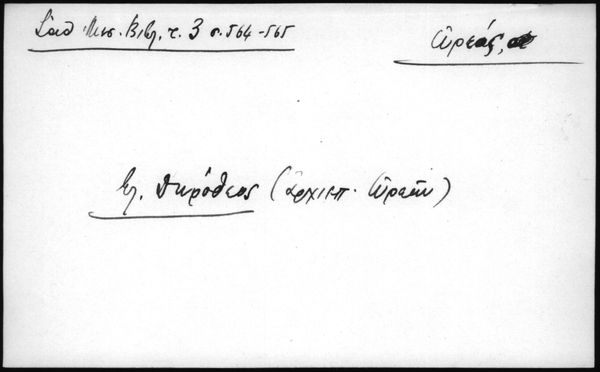 Σαθ Μεσ. Βιβλ, τ. 3 σ. 564-565
Ὠρεός,
βλ. Δωρόθεος (ἀρχιεπ. Ὠρεῶν)